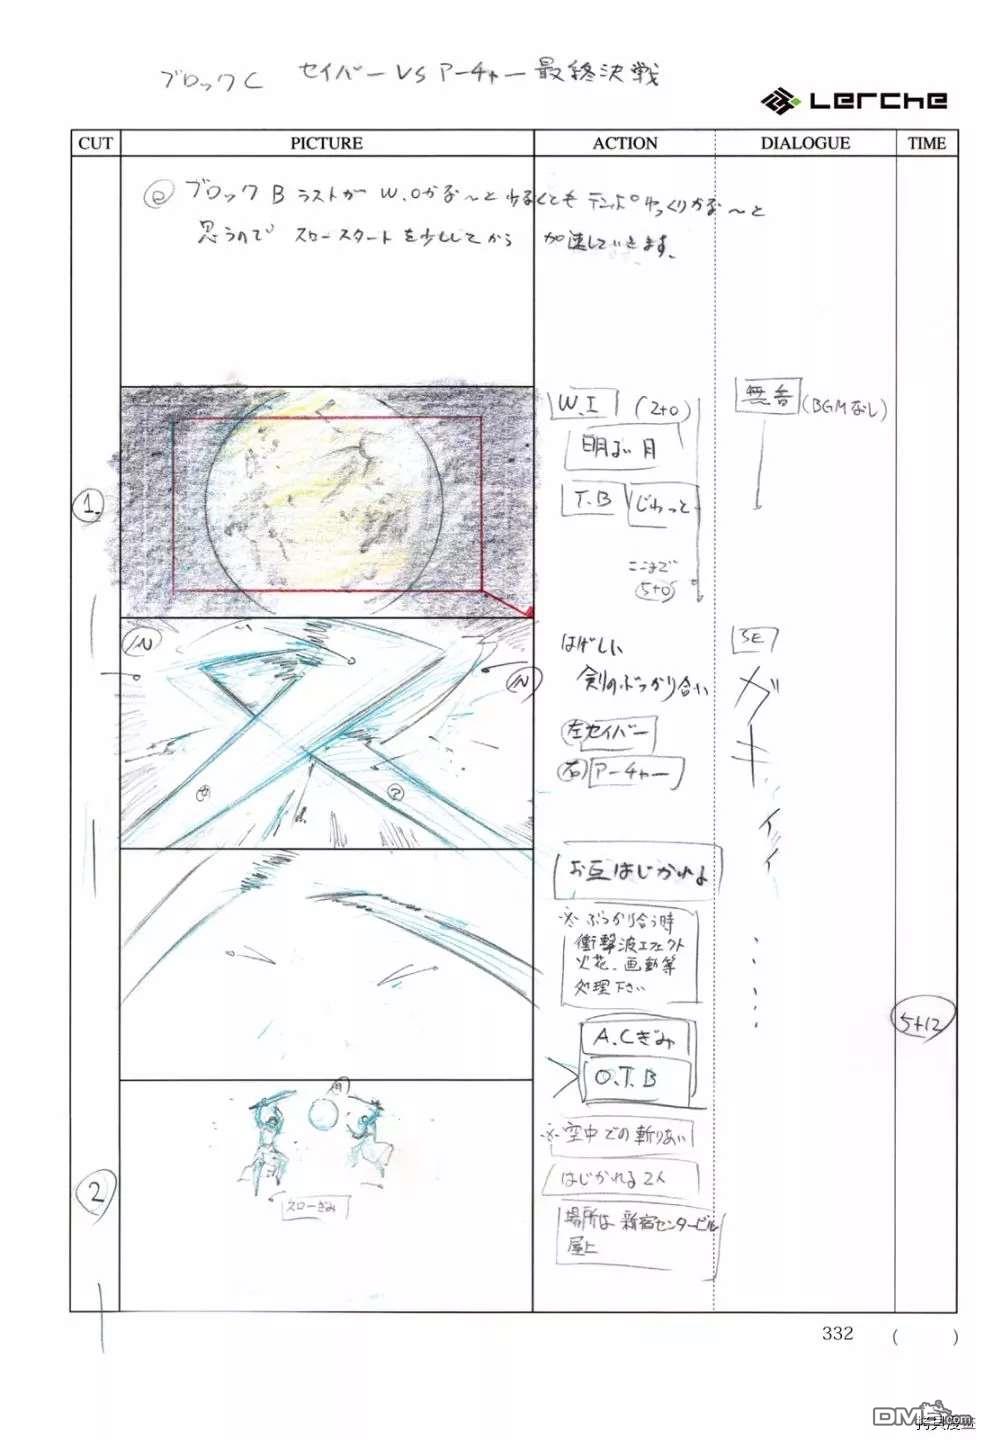 ブロックC セイバー VS アーチャー 最終決戦
Lerche
CUT PICTURE ACTION DIALOGUE TIME
ブロック B ラストが W.Oかな〜と 少なくとも テンポゆっくりかな〜と
思うので スロースタートを少ししてから 加速していきます。
1.
W.I (2+0)
明るい月
T.B じわっと
ここまで
5+0
無音 (BGMなし)
IN
IN
セ
ア
はげしい
剣のぶつかり合い
左 セイバー
右 アーチャー
SE
ガ
キ
ィ
ィ
お互はじかれる
※ ぶつかり合う時
衝撃波エフェクト
火花、画動等
処理下さい
5+12
A.Cぎみ
O.T.B
2
月
スローぎみ
※空中での斬りあい
はじかれる2人
場所は 新宿センタービル
屋上
332 ( )
拷贝漫畫